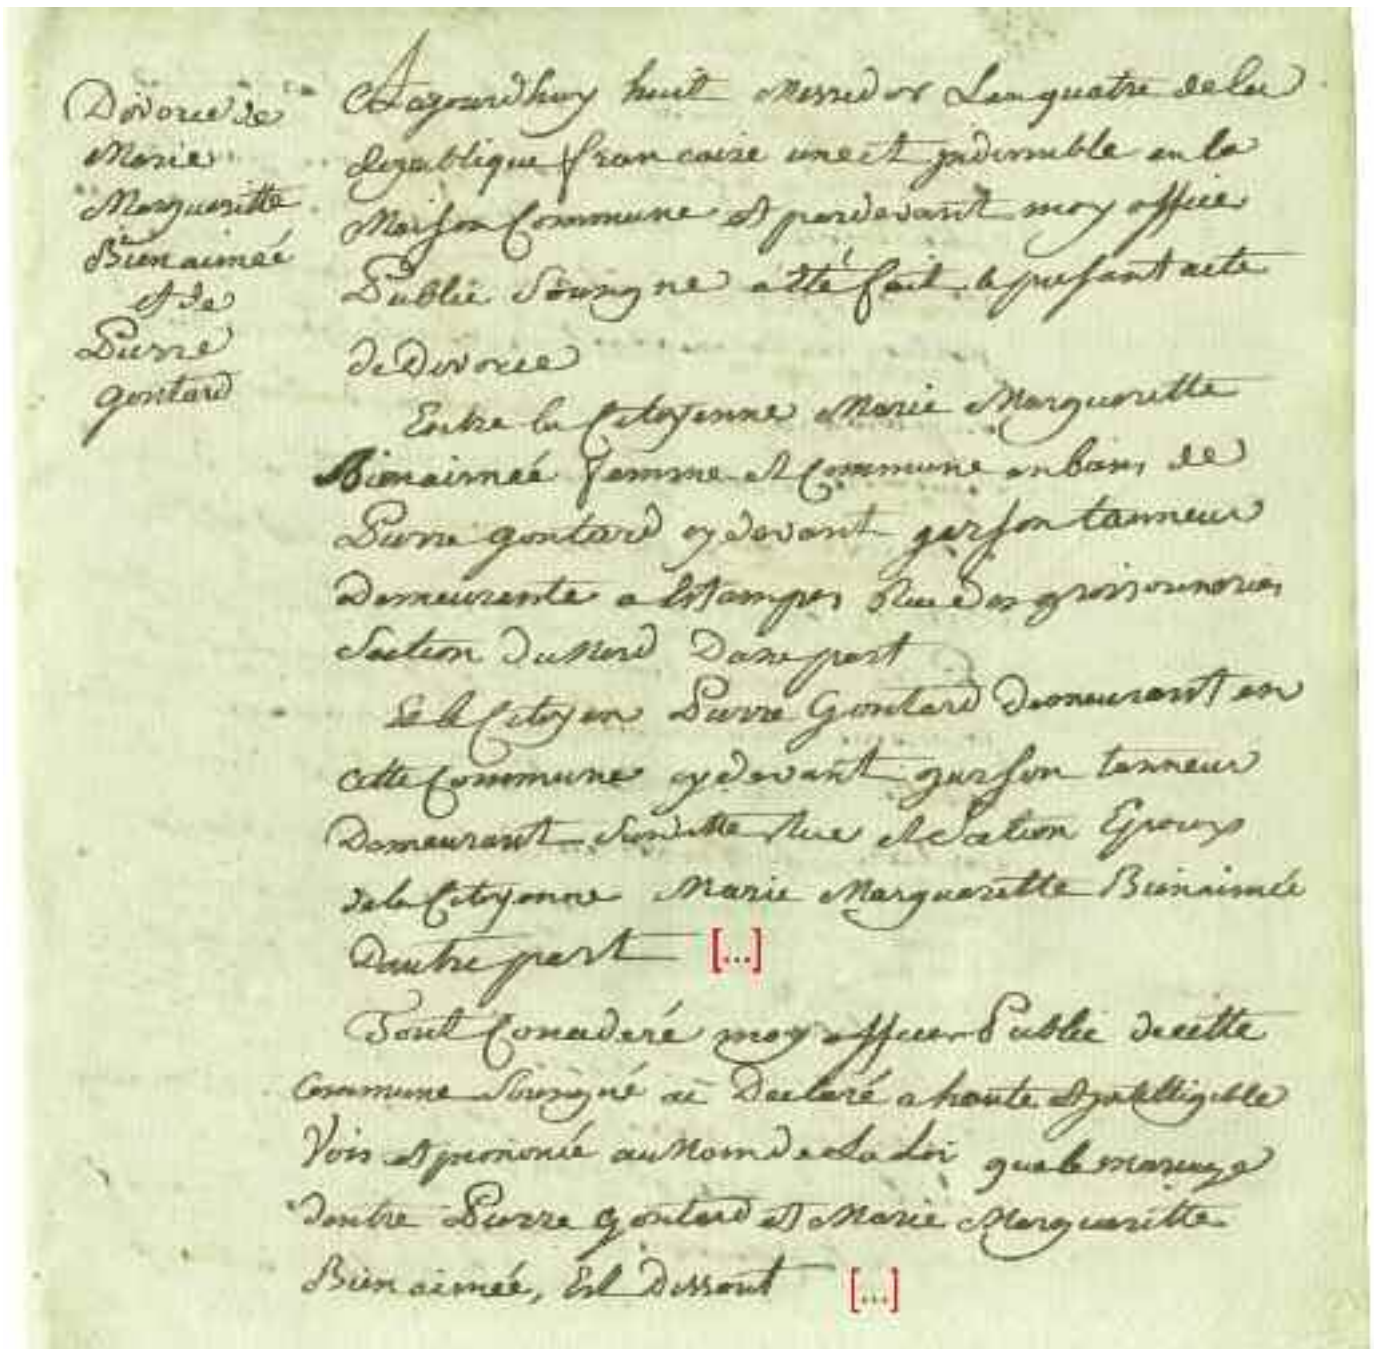 Divorce de
Marie
Margueritte
Bienaimeé
et de
Pierre
gontard
Aujourdhuy huit Messidor Lan quatre de la
Republique francaise une et jndivisible en la
Maison Commune et pardevant moy officier
Public Sousigne a été fait le presant acte
de Divorce
Entre la Citoyenne Marie Margueritte
Bienaimeé femme et Commune en biens de
Pierre gontard cy devant garson tanneur
Demeurente a Estampes Rue des
Section du Nord Dune part
Et le Citoyen Pierre Gontard demeurant en
cette Commune cy devant garson tanneur
Demeurant Susditte Rue et Section Epoux
de la Citoyenne Marie Margueritte Bienaimée
Dautre part [...]
Tout Consideré moy officier Public de cette
Commune Sousigné ai Declaré a haute et jntelligible
Voix et prononcé au Nom de La Loi que le mariage
dentre Pierre gontard et Marie Margueritte
Bienaimée, Est Dissout [...]